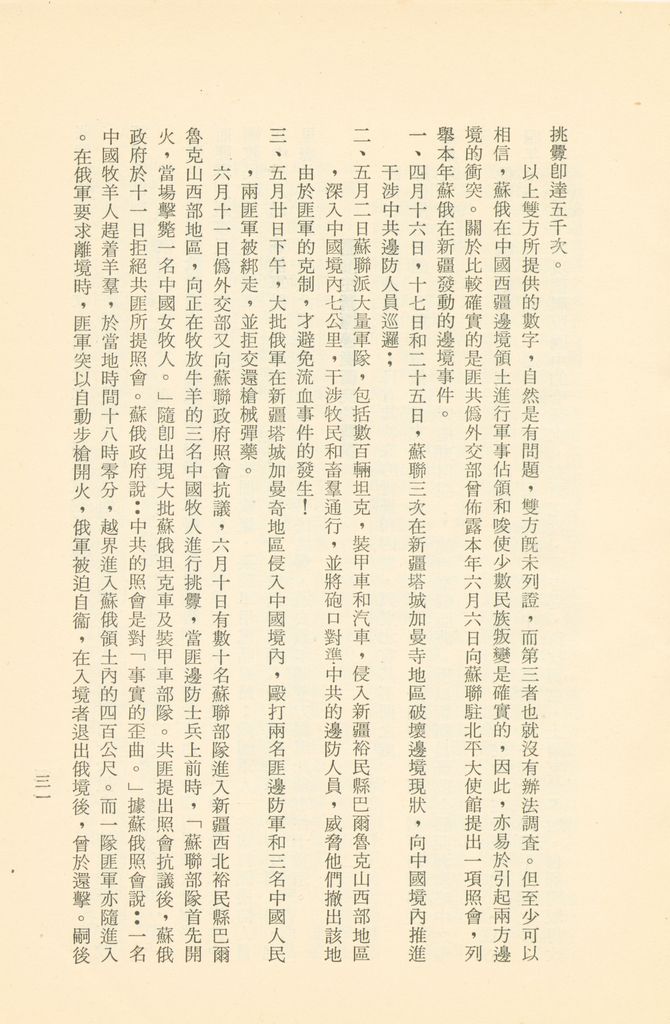 挑釁卽達五千次。
以上雙方所提供的數字，自然是有問題，雙方旣未列證，而第三者也就沒有辦法調查。但至少可以
相信，蘇俄在中國西疆邊境領土進行軍事佔領和唆使少數民族叛變是確實的，因此，亦易於引起兩方邊
境的衝突。關於比較確實的是匪共僞外交部曾佈露本年六月六日向蘇聯駐北平大使館提出一項照會，列
舉本年蘇俄在新疆發動的邊境事件。
一、四月十六日，十七日和二十五日，蘇聯三次在新疆塔城加曼寺地區破壞邊境現狀，向中國境內推進
干涉中共邊防人員巡邏；
二、五月二日蘇聯派大量軍隊，包括數百輛坦克，裝甲車和汽車，侵入新疆裕民縣巴爾魯克山西部地區
，深入中國境內七公里，干涉牧民和畜羣通行，並將砲口對準中共的邊防人員，威脅他們撤出該地
由於匪軍的克制，才避免流血事件的發生！
三、五月廿日下午，大批俄軍在新疆塔城加曼奇地區侵入中國境內，毆打兩名匪邊防軍和三名中國人民
，兩匪軍被綁走，並拒交還槍械彈藥。
六月十一日僞外交部又向蘇聯政府照會抗議，六月十日有數十名蘇聯部隊進入新疆西北裕民縣巴爾
魯克山西部地區，向正在牧放牛羊的三名中國牧人進行挑釁，當匪邊防士兵上前時，「蘇聯部隊首先開
火，當場擊斃一名中國女牧人。」隨卽出現大批蘇俄坦克車及裝甲車部隊。共匪提出照會抗議後，蘇俄
政府於十一日拒絕共匪所提照會。蘇俄政府說：中共的照會是對「事實的歪曲。」據蘇俄照會說：一名
中國牧羊人趕着羊羣，於當地時間十八時零分，越界進入蘇俄領土內的四百公尺。而一隊匪軍亦隨進入
。在俄軍要求離境時，匪軍突以自動步槍開火，俄軍被迫自衞，在入境者退出俄境後，曾於還擊。嗣後
三一